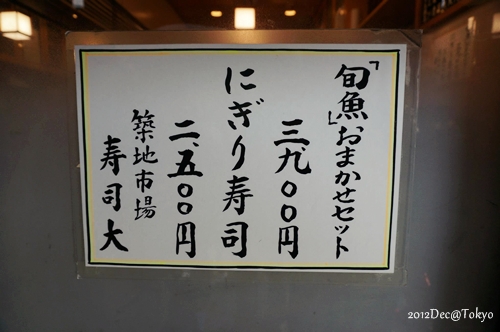 「旬魚」おまかせセット
三、九〇〇円
にぎり寿司
二、五〇〇円
築地市場
寿司大
2012Dec@Tokyo